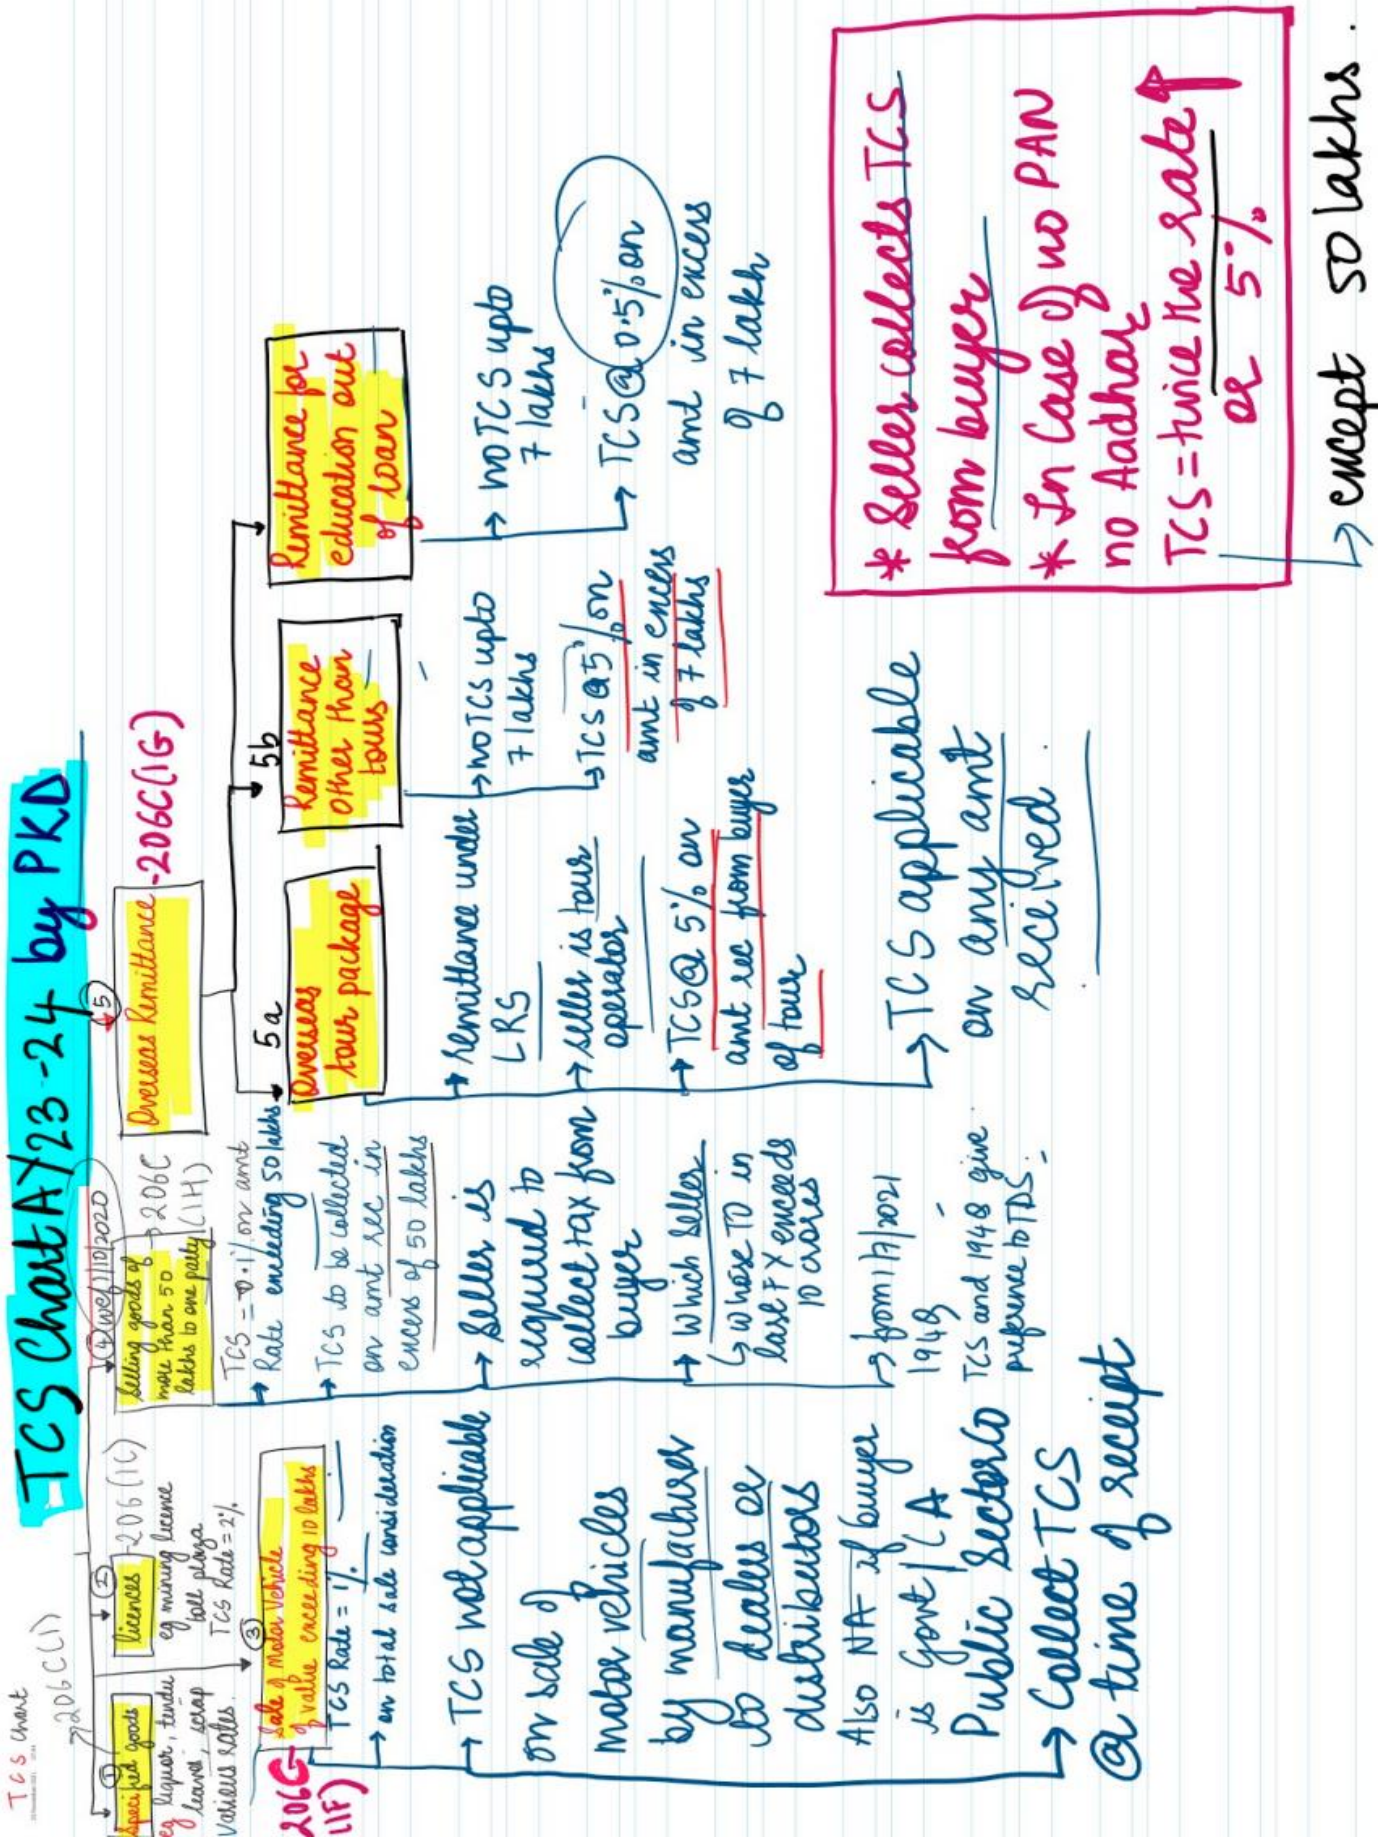 TCS Chart
TCS Chart AY23-24 by PKD
206C(1)
①
Specified goods
eg liquor, tendu
leaves, scrap
Various rates.
②
licences -206(1C)
eg mining licence
toll plaza
TCS Rate = 2%
③
206C
(1F)
Sale of Motor Vehicle
of value exceeding 10 lakhs
TCS Rate = 1%
→ on total sale consideration
→ TCS not applicable
on sale of
motor vehicles
by manufacturer
to dealers or
distributors
Also NA if buyer
is Govt / LA
Public Sector Co
→ Collect TCS
@ time of receipt
④ (wef 1/10/2020
Selling goods of
more than 50
lakhs to one party
→ 206C
(1H)
TCS = 0.1% on amt
→ Rate exceeding 50 lakhs
→ TCS to be collected
on amt rec in
excess of 50 lakhs
→ Seller is
required to
collect tax from
buyer
→ Which seller
↳ whose TO in
last FY exceeds
10 crores
→ from 1/7/2021
194Q
TCS and 194Q give
preference to TDS.
⑤
Overseas Remittance -206C(1G)
5a
Overseas
tour package
→ remittance under
LRS
→ seller is tour
operator
→ TCS@ 5% on
amt rec from buyer
of tour
→ TCS applicable
on any amt
received.
5b
Remittance
Other than
tours
→ no TCS upto
7 lakhs
↳ TCS @5% on
amt in excess
of 7 lakhs
Remittance for
education out
of loan
→ no TCS upto
7 lakhs
→ TCS@ 0.5% on
amt in excess
of 7 lakh
* Seller collects TCS
from buyer
* In Case of no PAN
no Aadhar
TCS = twice the rate
or 5%
↳ except 50 lakhs.